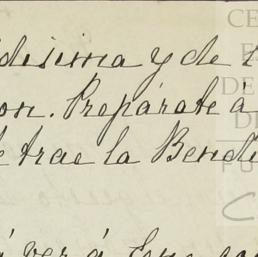 disima y de
on. Prepárate á
te trae la Bendi
á ver á
CE
E
DE
DE
FU
C